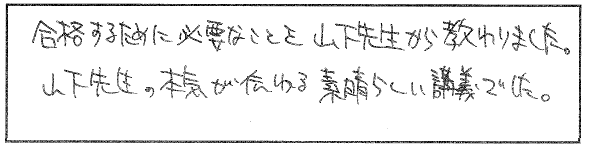 合格するために必要なことを山下先生から教わりました。
山下先生の本気が伝わる素晴らしい講義でした。